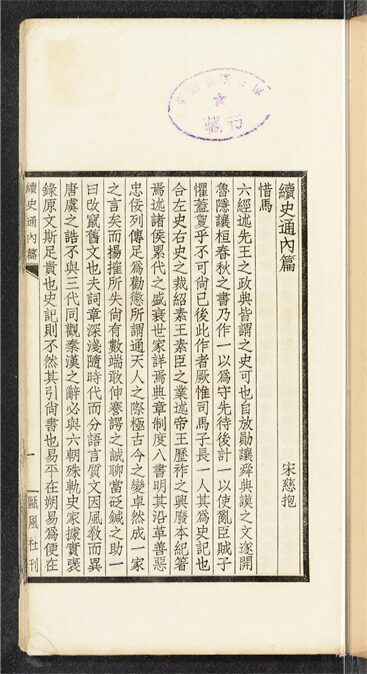 續史通內篇
宋慈抱
惜馬
六經述先王之政典皆謂之史可也自放勳讓舜典謨之文遂開
魯隱讓桓春秋之書乃作一以爲守先待後計一以使亂臣賊子
懼蓋敻乎不可尚已後此作者厥惟司馬子長一人其爲史記也
合左史右史之裁紹素王素臣之業述帝王歷祚之興廢本紀箸
焉述諸侯累代之盛衰世家詳焉典章制度八書明其沿革善惡
忠佞列傳足爲勸懲所謂通天人之際極古今之變卓然成一家
之言矣而揚搉所失尚有數端敢伸謇諤之誠聊當砭鍼之助一
曰改竄舊文也夫詞章深淺隨時代而分語言質文因風教而異
唐虞之誥不與三代同觀秦漢之辭必與六朝殊軌史家據實裒
錄原文斯足貴也史記則不然其引尚書也易平在朔易爲便在
續史通內篇
一
甌風社刊